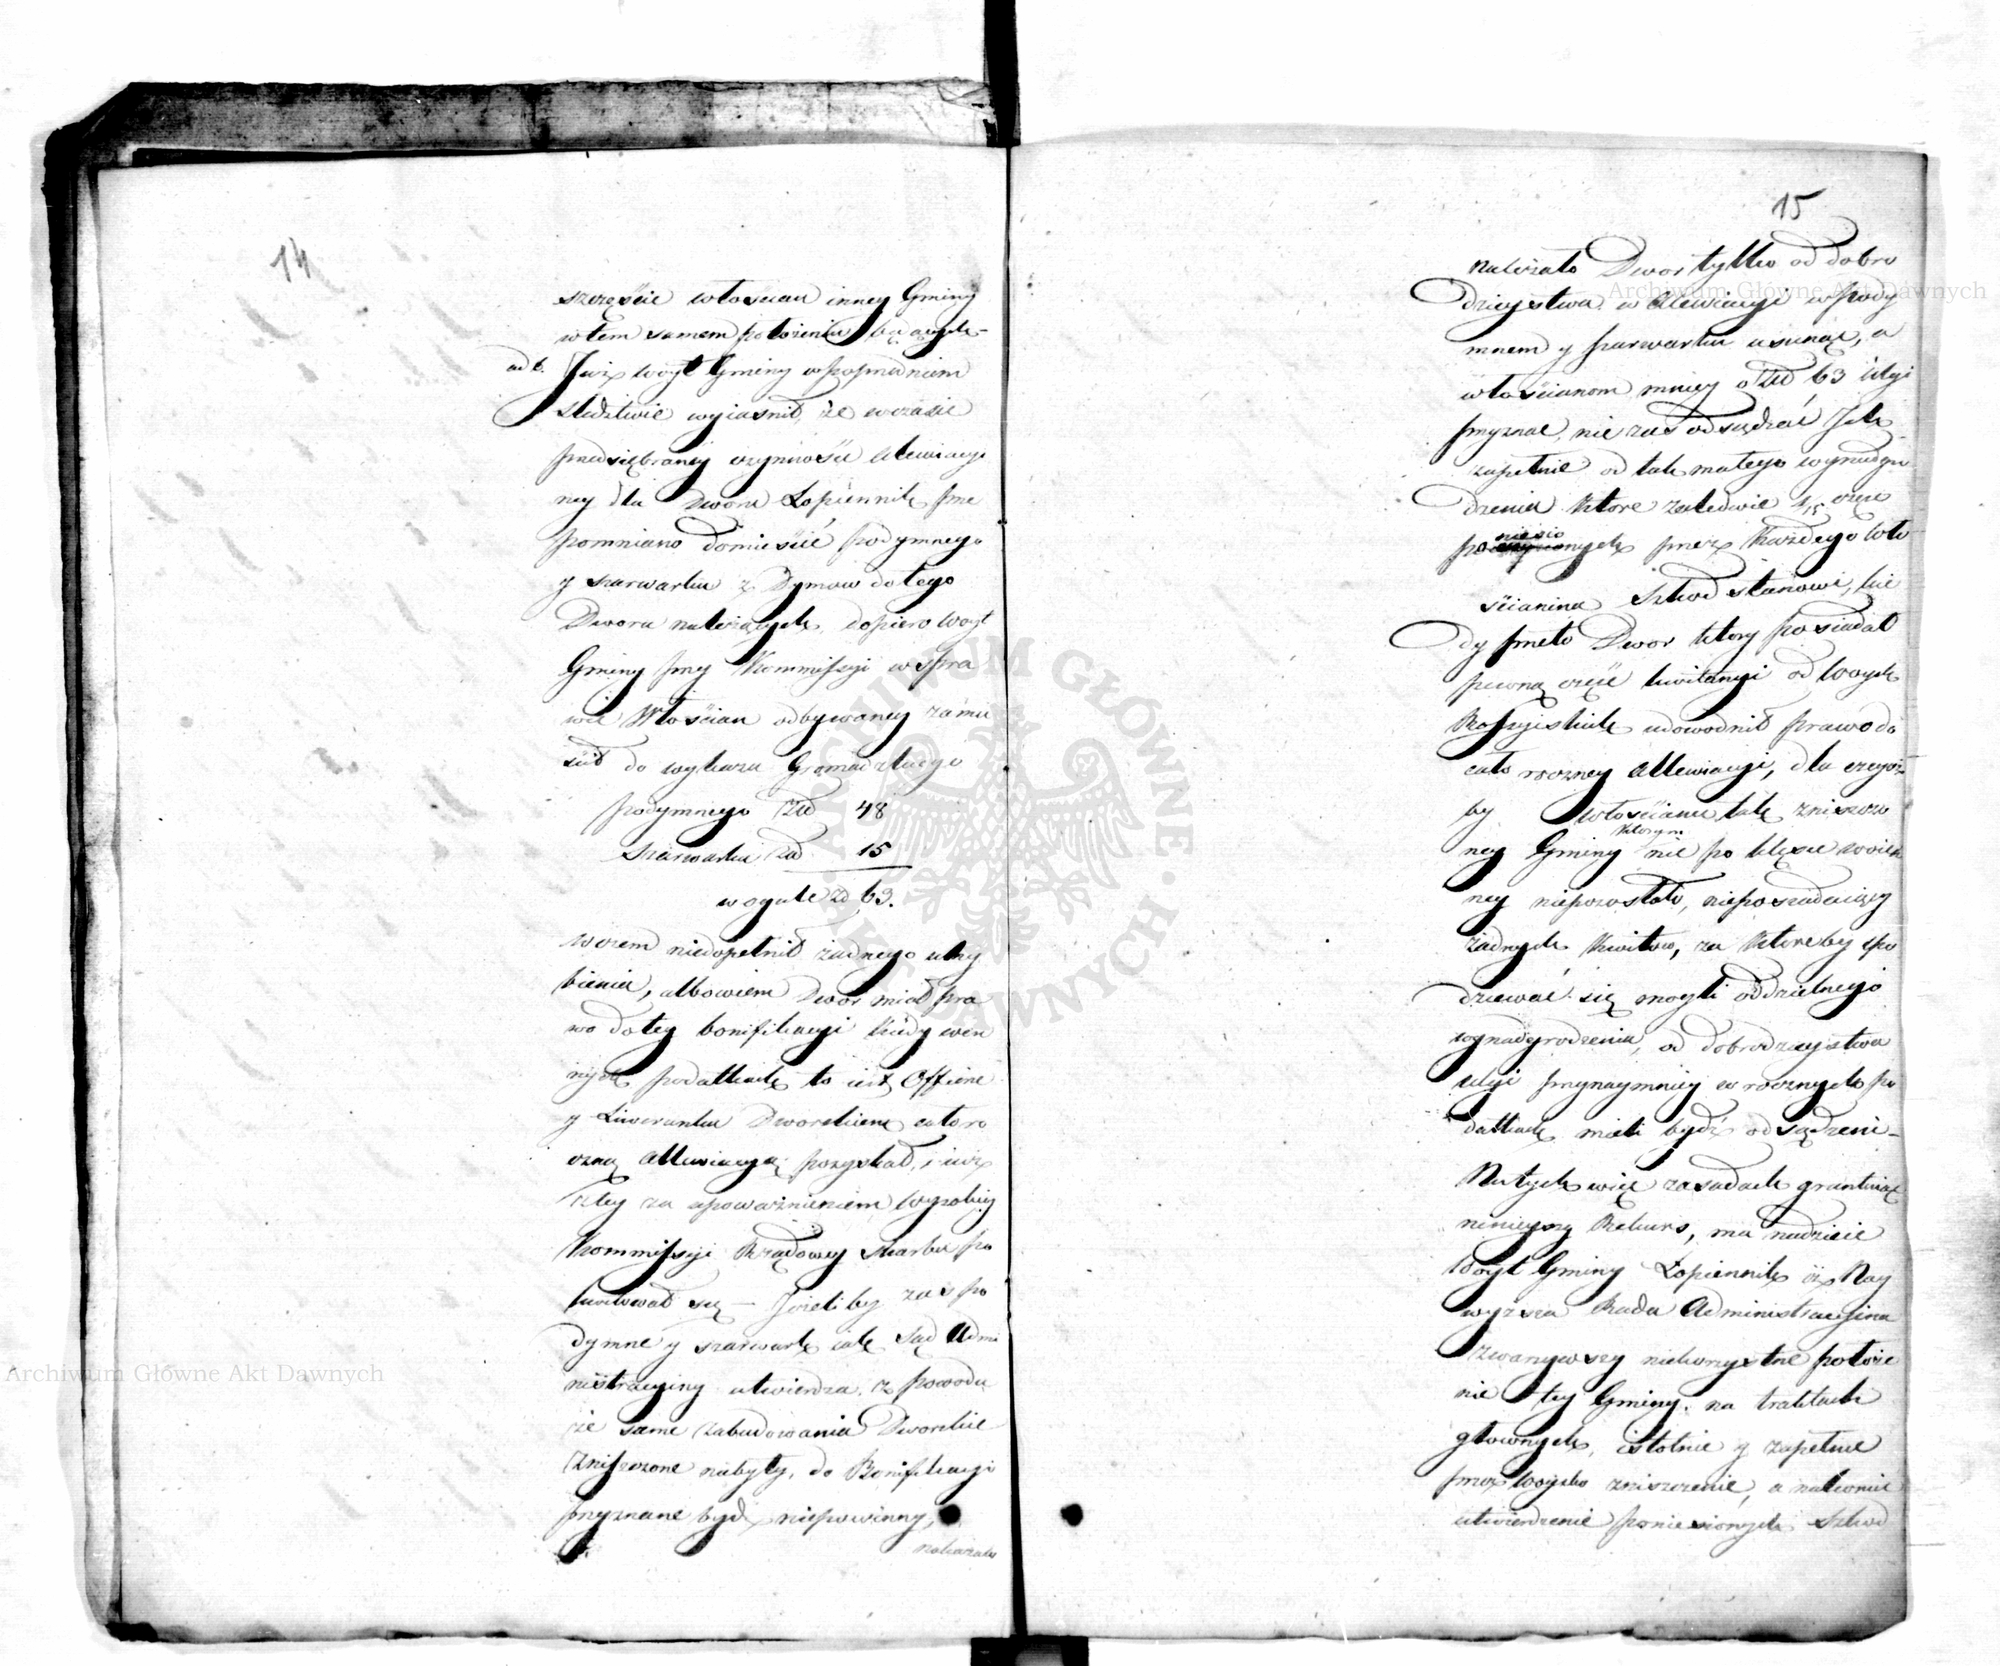 14
szczęście włościan inney Gminy
w tem samem położeniu będących –
ad 6. Już Woyt Gminy w poprzedniem
śledztwie wyiaśnił, że w czasie
przedsiębraney czynności allewiacyi
ney dla Dworu Łopiennik prze
pomniano domieścić podymnego
y szarwarku z Dymow do tego
Dworu należących, dopiero Woyt
Gminy przy Kommissyi w spra
wie Włościan odbywaney zamie
ścił do wykazu Gromadzkiego
podymnego Złł 48
szarwarku Złł 15
w ogule zł 63.
w czem niedopełnił żadnego uchy
bienia, albowiem Dwor miał pra
wo do tey bonifikacyi kiedy w in
nych podatkach to iest Offierze
y Liwerunku Dworskiem całoro
czną Allewiacyą pozyskał, i iuż
z tey za upoważnieniem Wysokiey
Kommissyi Rządowey Skarbu po
kwitował się – Jżeliby zaś po
dymne y szarwark iak Sąd Admi
nistracyiny utwierdza, z powodu
że same zabudowania Dworskie
zniszczone niebyły, do Bonifikacyi
przyznane bydź niepowinny,
należało
15
należało Dwor tylko od dobro
dzieystwa w Allewiacyi w pody
mnem y szarwarku usunąć, a
włościanom mniey o Złł 63 ulgi
przyznać, nie zaś odsądzać Ich
zupełnie od tak małego wynadgro
dzenia które zaledwie 1/15 część
niesio
ponych przez każdego wło
ścianina szkod stanowi, kie
dy przeto Dwor ktory posiadał
pewną część kwitancyi od Woysk
Rossyiskich udowodnił prawo do
cało roczney Allewiacyi, dla czegoż
by włościanie tak zniszczo
ktorym
ney Gminy nic po klęsce woien
ney niepozostało, nieposiadaiący
żadnych kwitow, za ktoreby spo
dziewać się mogli oddzielnego
wynadgrodzenia, od dobrodzieystwa
ulgi przynaymniey w rocznych po
datkach mieli bydź odsądzeni –
Na tych więc zasadach gruntuiąc
ninieyszy Rekurs, ma nadzieie
Woyt Gminy Łopiennik iż Nay
wyższa Rada Administracyina
zważywszy niekorzystne położe
nie tey Gminy na traktach
głownych, istotnie y zupełne
przez Woysko zniszczenie, a nakoniec
utwierdzenie poniesionych szkod